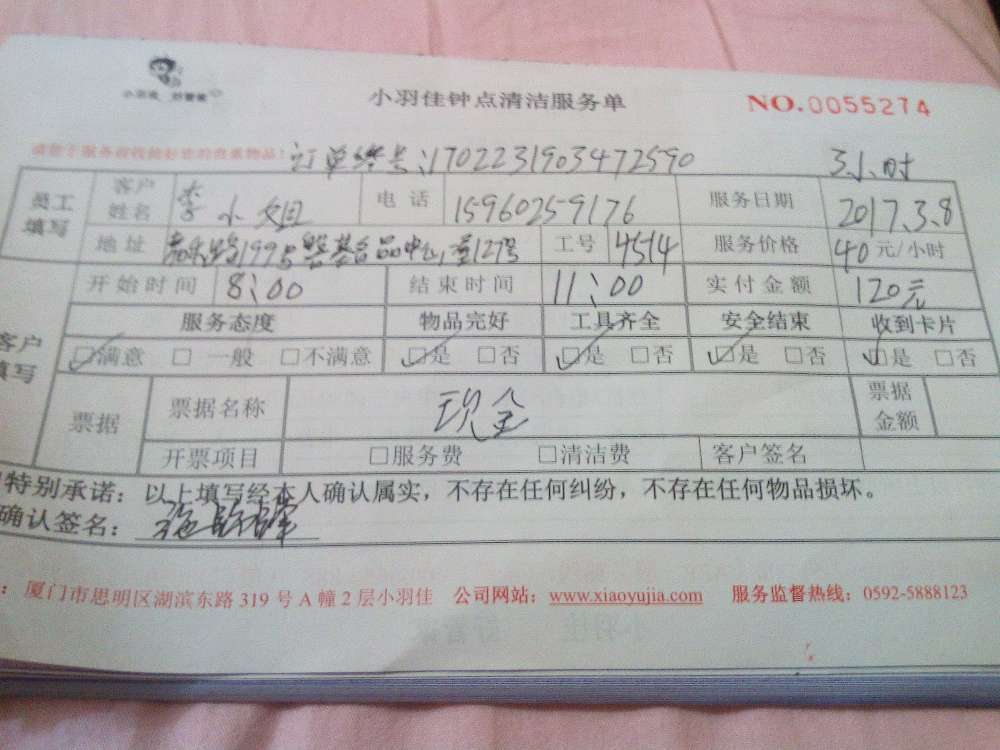 小羽佳 好管家
小羽佳钟点清洁服务单
NO.0055274
订单终号:1702231903472590 3小时
员工填写 客户姓名 李小姐 电话 15960259176 服务日期 2017.3.8
地址 199号 127号 工号 4514 服务价格 40元/小时
开始时间 8:00 结束时间 11:00 实付金额 120元
客户填写 服务态度 物品完好 工具齐全 安全结束 收到卡片
☑满意 □一般 □不满意 ☑是 □否 ☑是 □否 ☑是 □否 ☑是 □否
票据 票据名称 现金 票据金额
开票项目 □服务费 □清洁费 客户签名
特别承诺:以上填写经本人确认属实,不存在任何纠纷,不存在任何物品损坏。
确认签名:
:厦门市思明区湖滨东路 319 号 A 幢 2 层小羽佳 公司网站:www.xiaoyujia.com 服务监督热线:0592-5888123